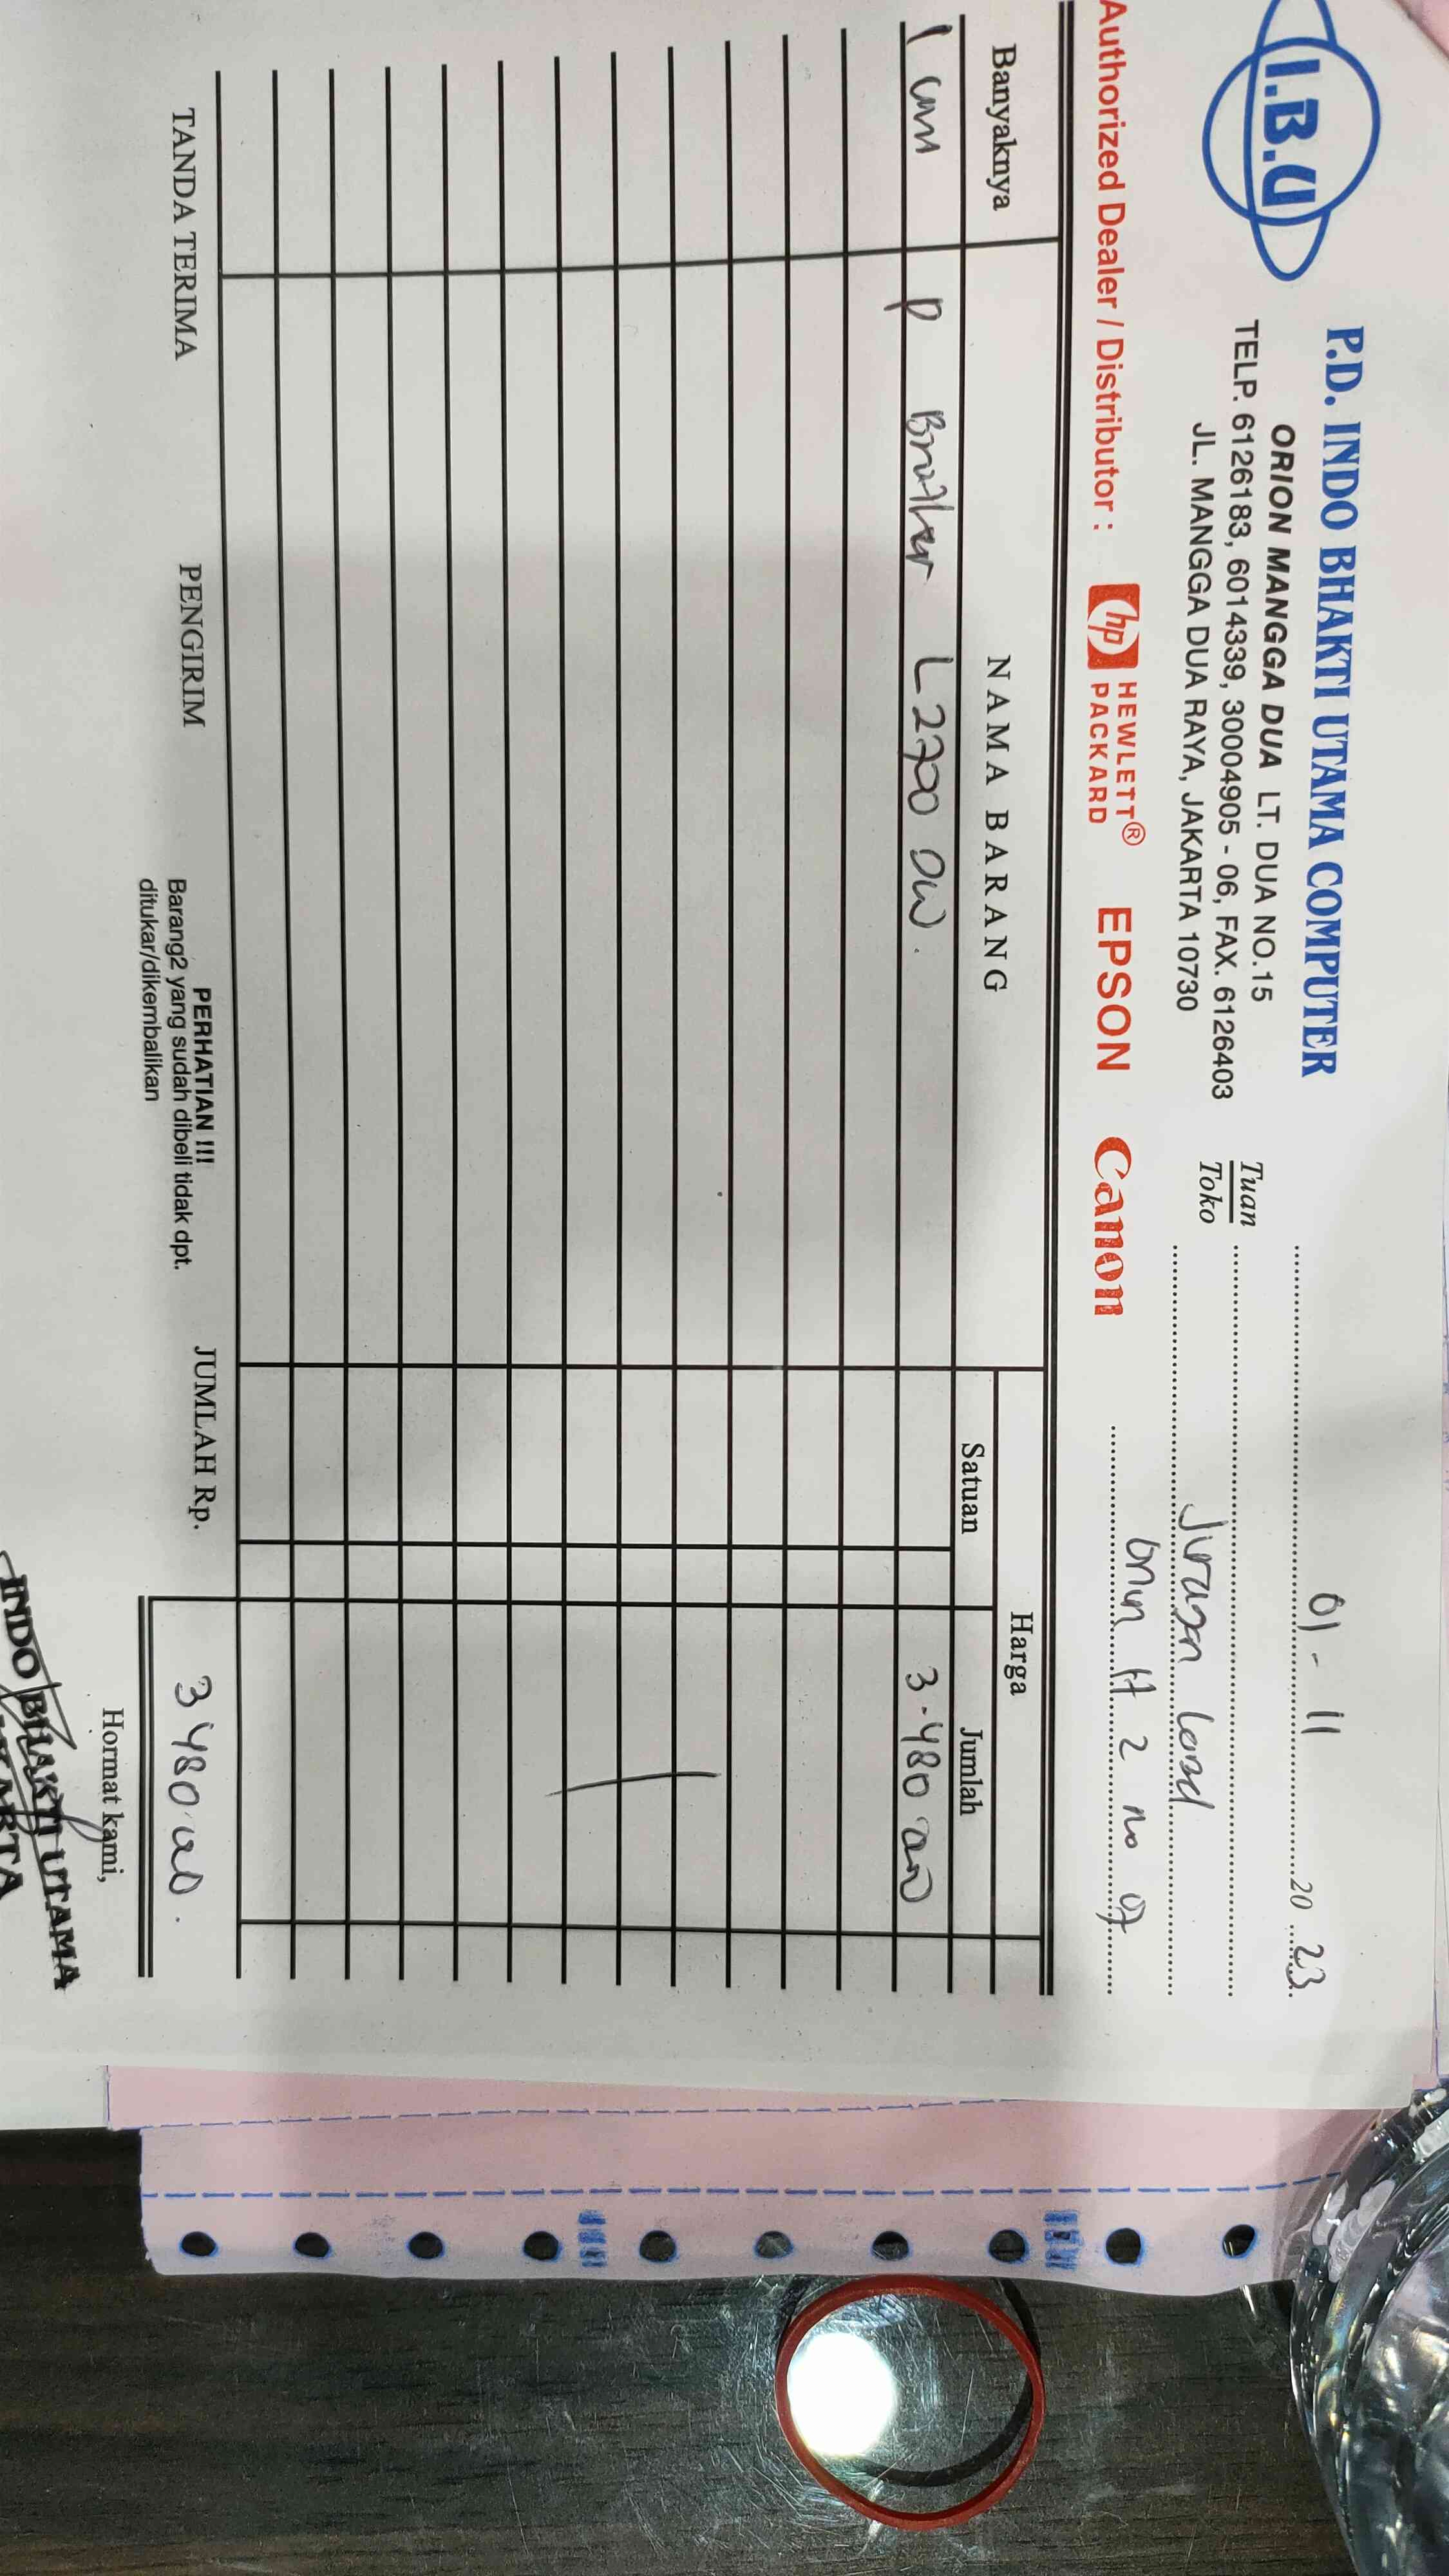 I.B.U
P.D. INDO BHAKTI UTAMA COMPUTER
ORION MANGGA DUA LT. DUA NO.15
TELP. 6126183, 6014339, 30004905 - 06, FAX. 6126403
JL. MANGGA DUA RAYA, JAKARTA 10730
01 - 11 20 23
Tuan
Toko
Juragan
lt 2 no 07
Authorized Dealer / Distributor : hp HEWLETT® PACKARD EPSON Canon
Banyaknya NAMA BARANG Harga
Satuan Jumlah
1 P Brother L2700 DW. 3.480.000
TANDA TERIMA PENGIRIM JUMLAH Rp. 3480.000.
PERHATIAN !!!
Barang2 yang sudah dibeli tidak dpt.
ditukar/dikembalikan
Hormat kami,
INDO BHAKTI UTAMA